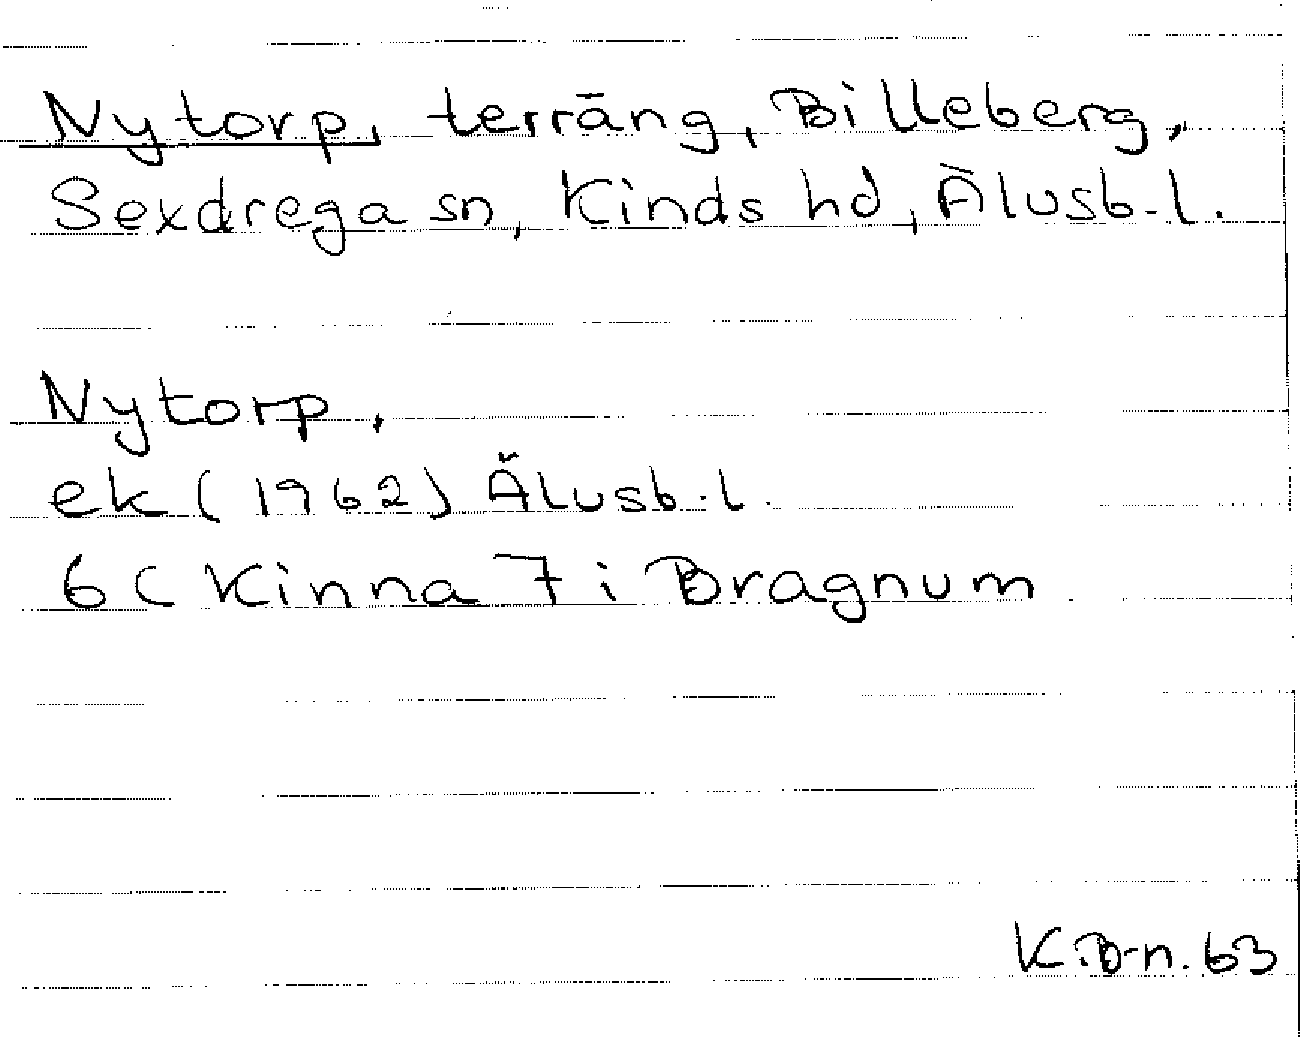 Nytorp, terräng, Billeberg,
Sexdrega sn, Kinds hd, Älvsb.l.
Nytorp.
ek (1962) Älvsb.l.
6C Kinna 7i Bragnum
K.B-n. 63